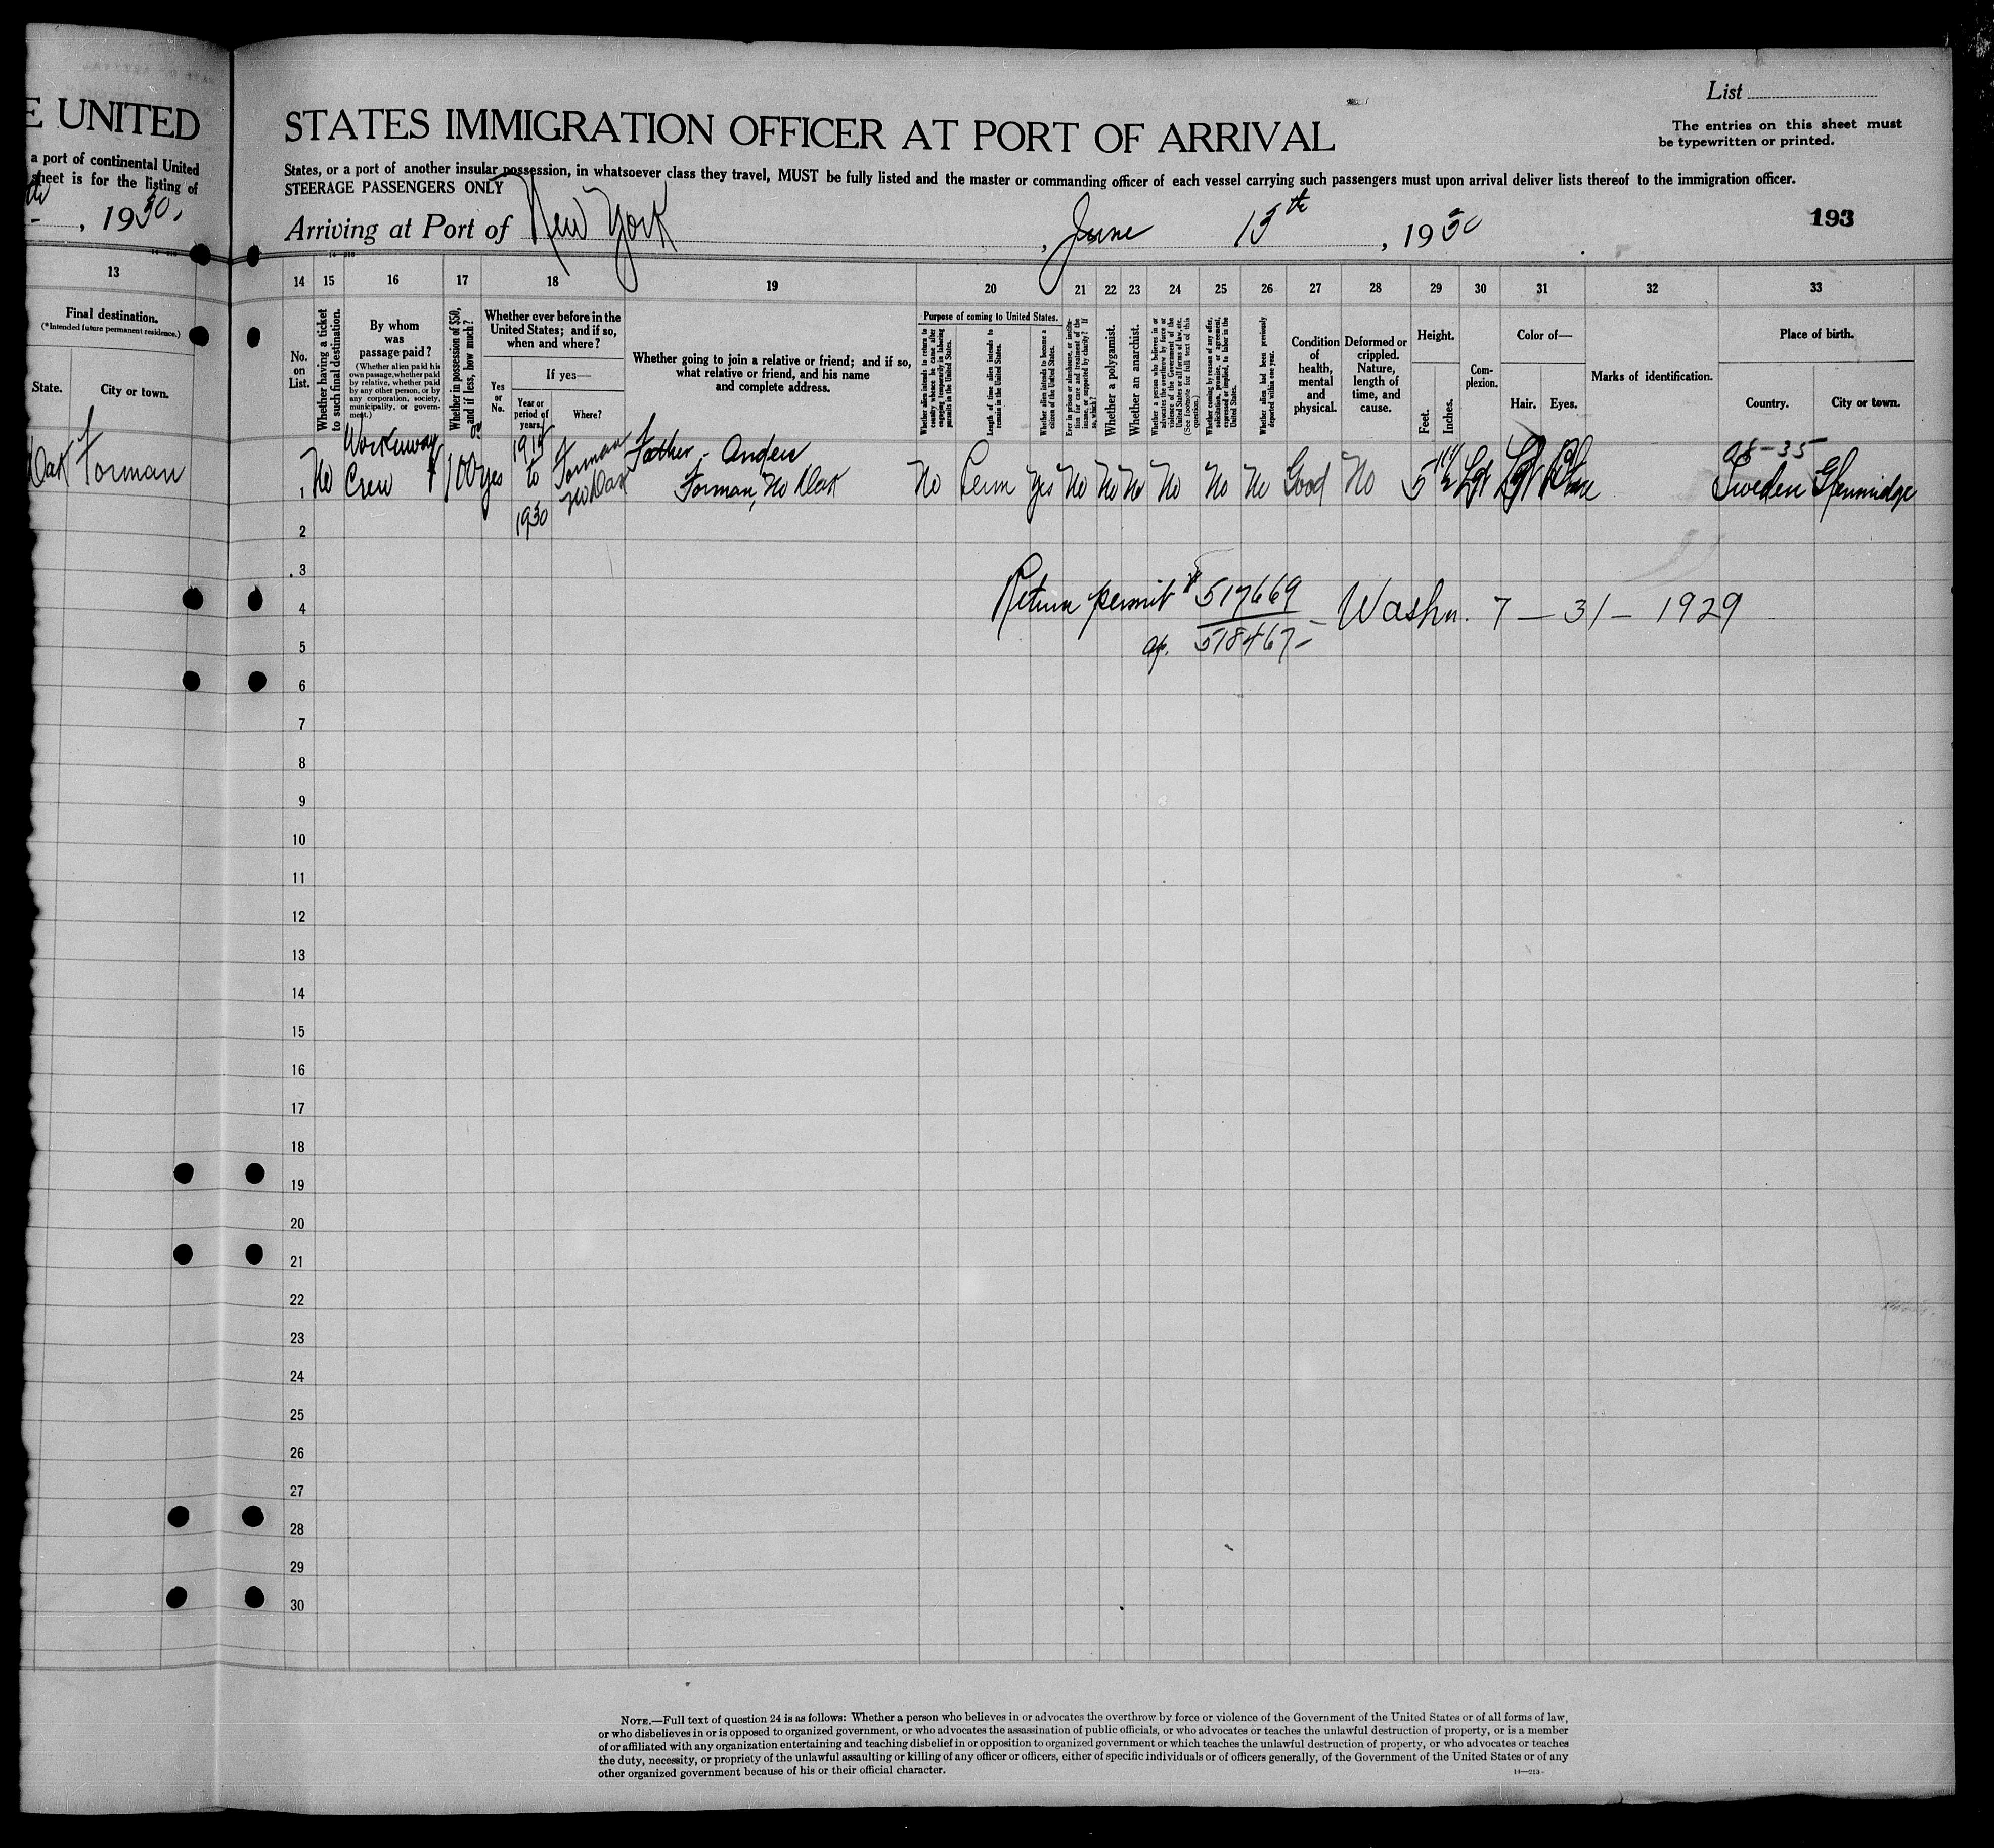 E UNITED
a port of continental United
sheet is for the listing of
, 1930.
13
Final destination.
(*Intended future permanent residence.)
State.
City or town.
Dak Forman
List
STATES IMMIGRATION OFFICER AT PORT OF ARRIVAL
The entries on this sheet must
be typewritten or printed.
States, or a port of another insular possession, in whatsoever class they travel, MUST be fully listed and the master or commanding officer of each vessel carrying such passengers must upon arrival deliver lists thereof to the immigration officer.
STEERAGE PASSENGERS ONLY
Arriving at Port of New York, June 15th, 1930
193
14 15 16 17 18 19 20 21 22 23 24 25 26 27 28 29 30 31 32 33
No. on List.
Whether having a ticket to such final destination.
By whom was passage paid?
(Whether alien paid his own passage, whether paid by relative, whether paid by any other person, or by any corporation, society, municipality, or government.)
Whether in possession of $50, and if less, how much?
Whether ever before in the United States; and if so, when and where?
Yes or No.
If yes—
Year or period of years.
Where?
Whether going to join a relative or friend; and if so, what relative or friend, and his name and complete address.
Purpose of coming to United States.
Whether alien intends to return to country whence he came after engaging temporarily in laboring pursuits in the United States.
Length of time alien intends to remain in the United States.
Whether alien intends to become a citizen of the United States.
Ever in prison or almshouse, or institution for care and treatment of the insane, or supported by charity? If so, which?
Whether a polygamist.
Whether an anarchist.
Whether a person who believes in or advocates the overthrow by force or violence of the Government of the United States or all forms of law, etc. (See footnote for full text of this question.)
Whether coming by reason of any offer, solicitation, promise, or agreement, expressed or implied, to labor in the United States.
Whether alien had been previously deported within one year.
Condition of health, mental and physical.
Deformed or crippled. Nature, length of time, and cause.
Height.
Feet.
Inches.
Complexion.
Color of—
Hair.
Eyes.
Marks of identification.
Place of birth.
Country.
City or town.
1 No Workaway Crew $100 yes to 1930 Forman No Dak Father - Forman, No Dak No Perm Yes No No No No No No Good No 5 Lgt Lgt Blue Sweden
2
3
Return permit # 517669 - Washn. 7 - 31 - 1929
4
518467 -
5
6
7
8
9
10
11
12
13
14
15
16
17
18
19
20
21
22
23
24
25
26
27
28
29
30
NOTE.—Full text of question 24 is as follows: Whether a person who believes in or advocates the overthrow by force or violence of the Government of the United States or of all forms of law,
or who disbelieves in or is opposed to organized government, or who advocates the assassination of public officials, or who advocates or teaches the unlawful destruction of property, or is a member
of or affiliated with any organization entertaining and teaching disbelief in or opposition to organized government or which teaches the unlawful destruction of property, or who advocates or teaches
the duty, necessity, or propriety of the unlawful assaulting or killing of any officer or officers, either of specific individuals or of officers generally, of the Government of the United States or of any
other organized government because of his or their official character.